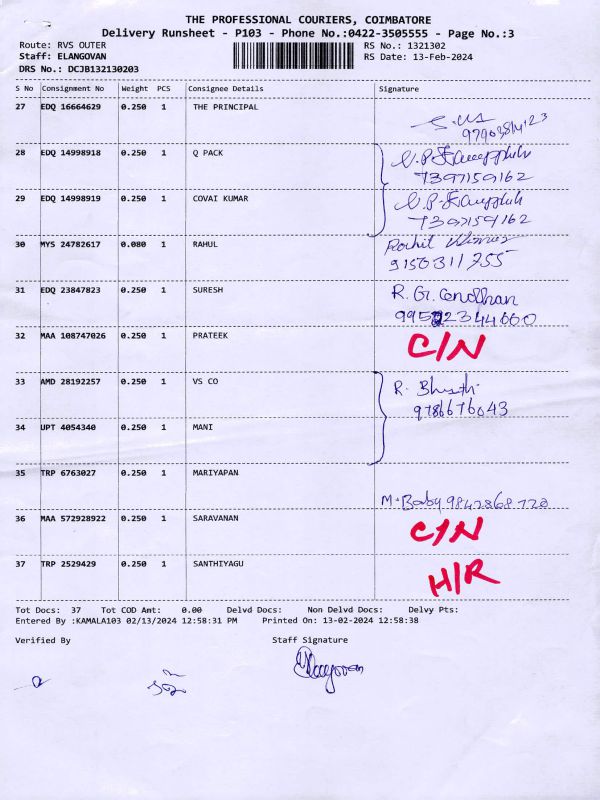 THE PROFESSIONAL COURIERS, COIMBATORE
Delivery Runsheet - P103 - Phone No.:0422-3505555 - Page No.:3
Route: RVS OUTER RS No.: 1321302
Staff: ELANGOVAN RS Date: 13-Feb-2024
DRS No.: DCJB132130203
S No Consignment No Weight PCS Consignee Details Signature
27 EDQ 16664629 0.250 1 THE PRINCIPAL
28 EDQ 14998918 0.250 1 Q PACK
7397159162
29 EDQ 14998919 0.250 1 COVAI KUMAR
7397159162
30 MYS 24782617 0.080 1 RAHUL
9150311755
31 EDQ 23847823 0.250 1 SURESH R. G. Cendhan
32 MAA 108747026 0.250 1 PRATEEK C/N
33 AMD 28192257 0.250 1 VS CO
9786676043
34 UPT 4054340 0.250 1 MANI
35 TRP 6763027 0.250 1 MARIYAPAN
M. Baby 9842868720
36 MAA 572928922 0.250 1 SARAVANAN C/N
37 TRP 2529429 0.250 1 SANTHIYAGU H/R
Tot Docs: 37 Tot COD Amt: 0.00 Delvd Docs: Non Delvd Docs: Delvy Pts:
Entered By :KAMALA103 02/13/2024 12:58:31 PM Printed On: 13-02-2024 12:58:38
Verified By Staff Signature
Elangovan